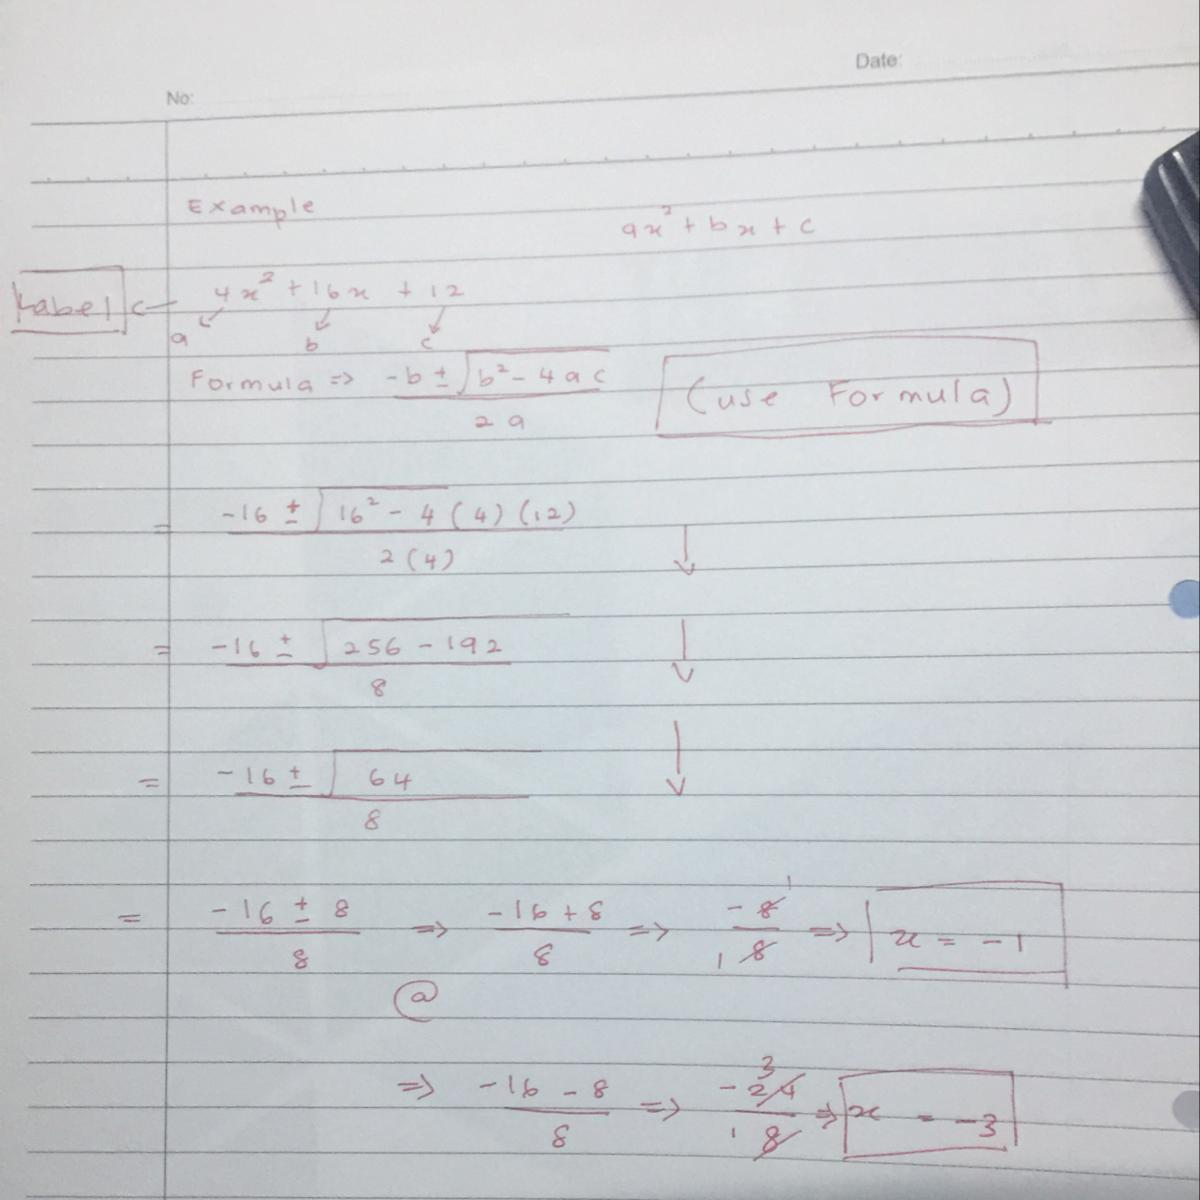 Date:
No:
Example
ax² + bx + c
Label
4x² + 16x + 12
a b c
Formula => -b ± √b² - 4ac
2a
(use Formula)
= -16 ± √16² - 4(4)(12)
2(4)
= -16 ± √256 - 192
8
= -16 ± √64
8
= -16 ± 8 => -16 + 8 => -8 1 => x = -1
8 8 1 8
@
=> -16 - 8 => -24 3 => x = -3
8 1 8